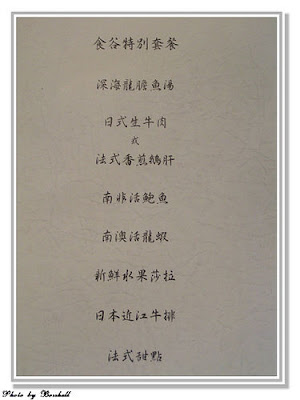 食谷特別套餐
深海龍膽魚湯
日式生牛肉
或
法式香煎鵝肝
南非活鮑魚
南澳活龍蝦
新鮮水果莎拉
日本近江牛排
法式甜點